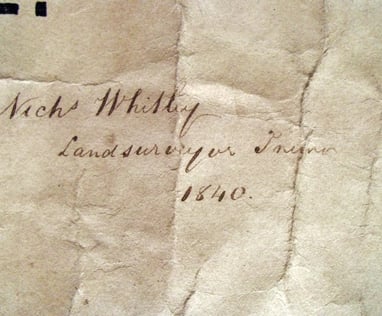 Nichs Whitley
Landsurveyor Truro
1840.